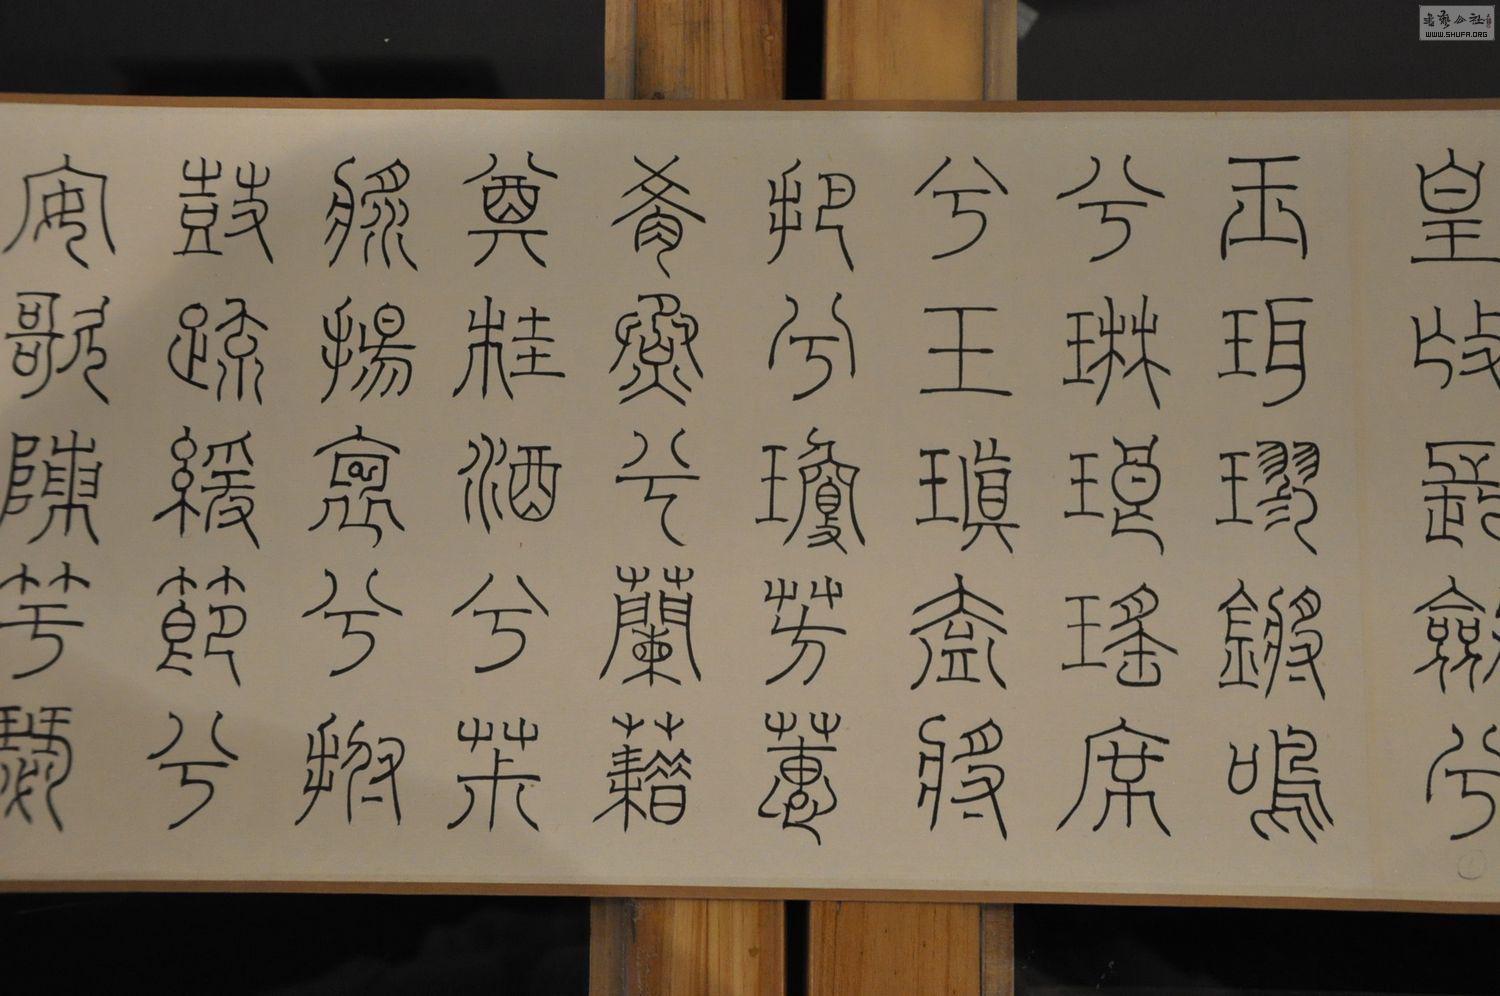 皇撫長劍兮
玉珥璆鏘鳴
兮琳琅瑤席
兮玉瑱盍將
把兮瓊芳蕙
肴蒸兮蘭藉
奠桂酒兮椒
漿揚枹兮拊
鼓疏緩節兮
安歌陳竽瑟
WWW.SHUFA.ORG